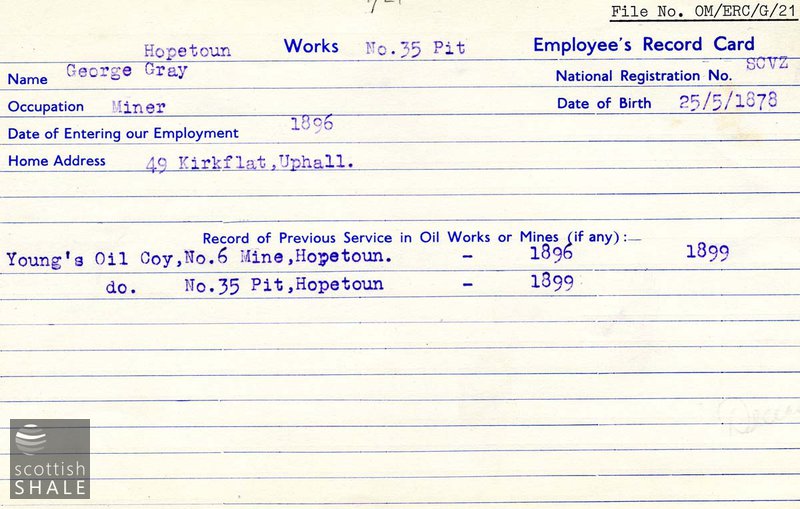 File No. OM/ERC/G/21
Hopetoun Works No.35 Pit Employee's Record Card
Name George Gray National Registration No. SCVZ
Occupation Miner Date of Birth 25/5/1878
Date of Entering our Employment 1896
Home Address 49 Kirkflat,Uphall.
Record of Previous Service in Oil Works or Mines (if any):—
Young's Oil Coy,No.6 Mine,Hopetoun. - 1896 1899
do. No.35 Pit,Hopetoun - 1899
scottish
SHALE